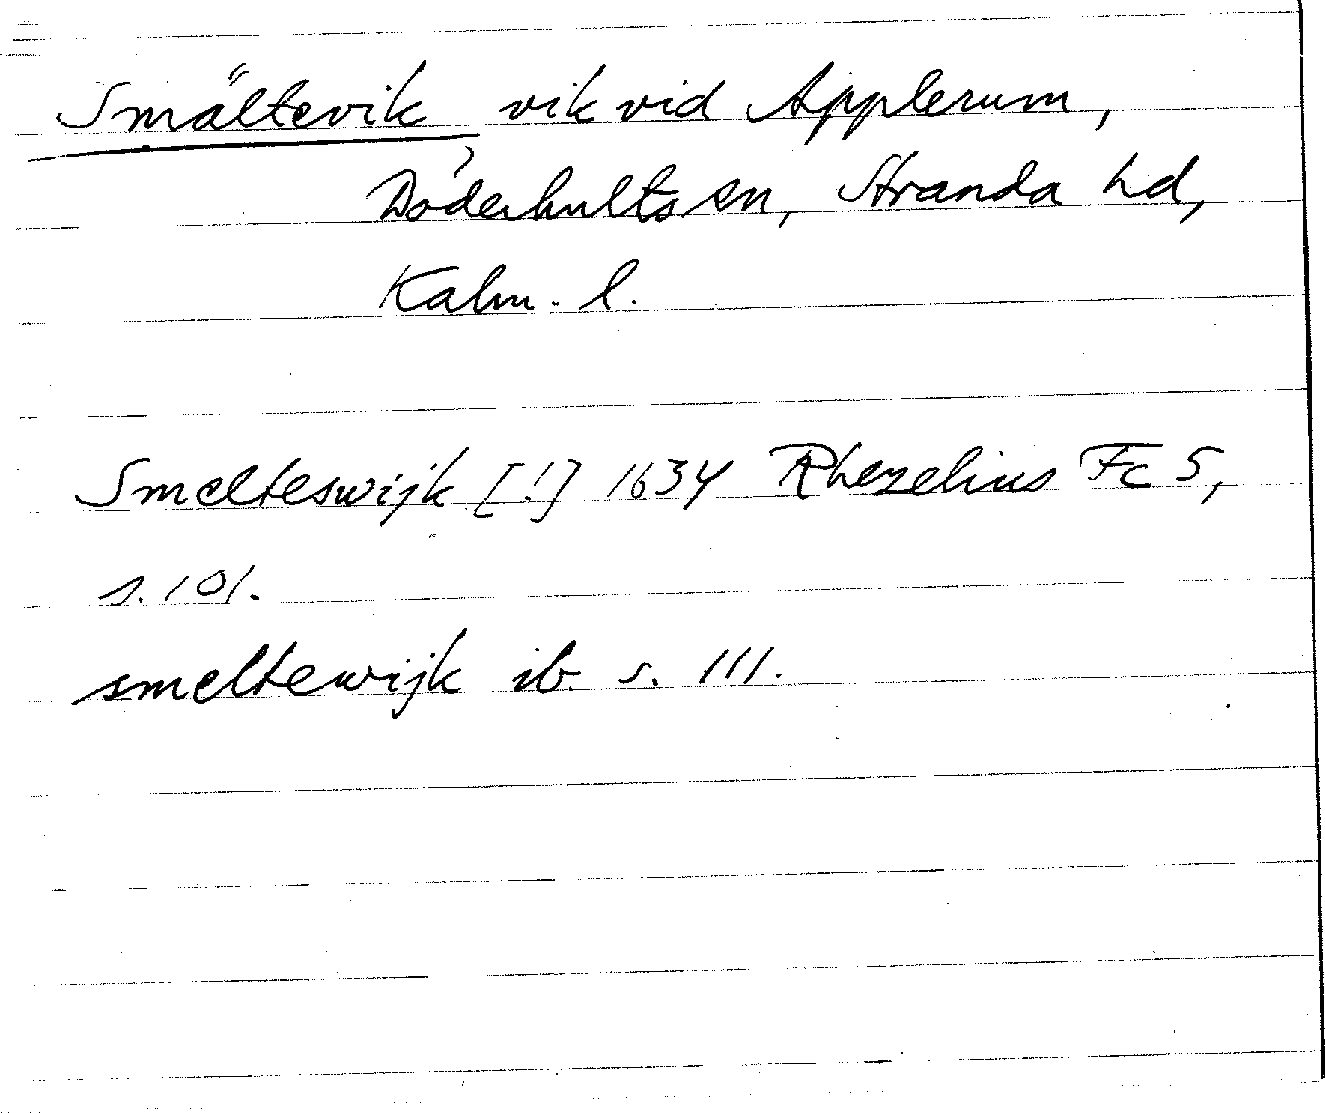 Smältevik, vik vid Applerum,
Döderhults sn, Stranda hd,
Kalm. l.
Smelteswijk [!] 1634 Rhezelius Fc 5,
s. 101.
smeltewijk ib. s. 111.